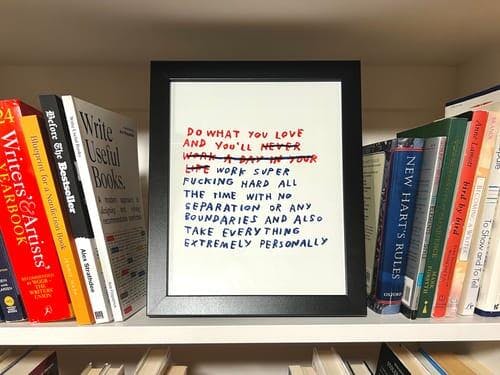 DO WHAT YOU LOVE
AND YOU'LL NEVER
WORK A DAY IN YOUR
LIFE WORK SUPER
FUCKING HARD ALL
THE TIME WITH NO
SEPARATION OR ANY
BOUNDARIES AND ALSO
TAKE EVERYTHING
EXTREMELY PERSONALLY
24
Writers' & Artists'
YEARBOOK
Blueprint for a Nonfiction Book
Before The Bestseller
Alex Strathdee
Write
Useful
Books
NEW HART'S RULES
OXFORD
MARK
FORSYTH
Anne Lamott
bird by bird
To Show and to Tell